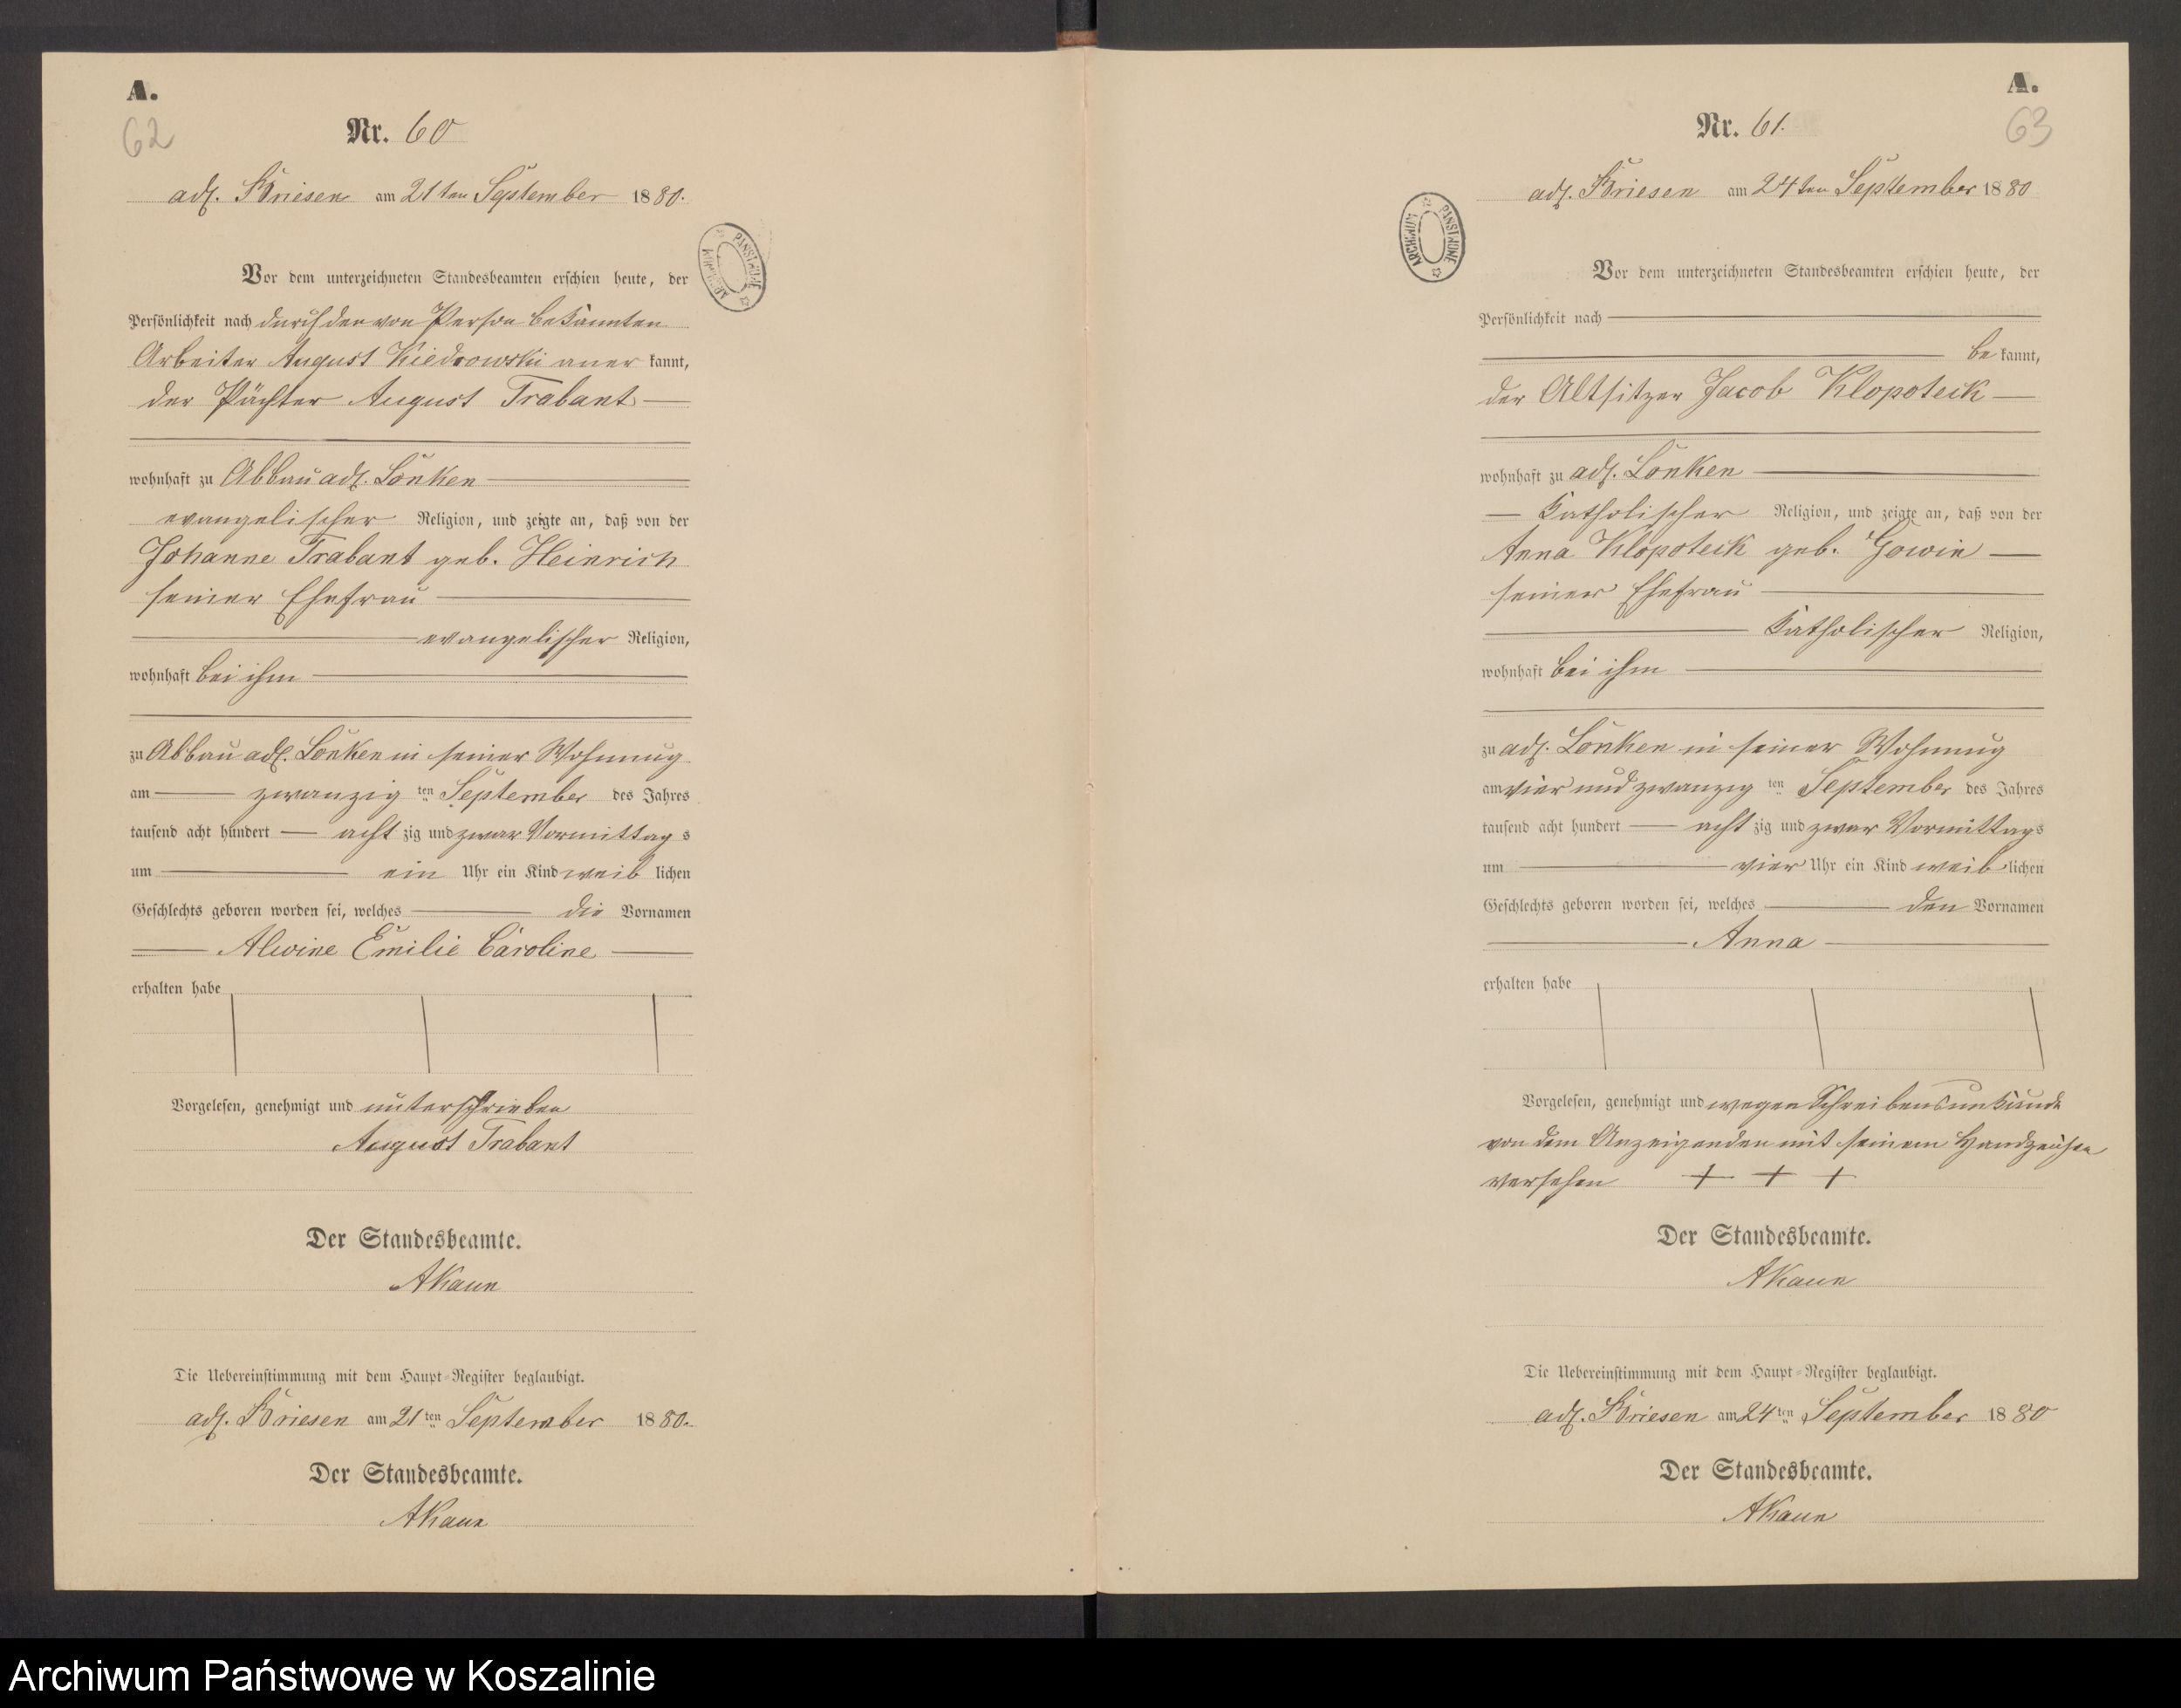 A.
62
Nr. 60
adl. Briesen am 21ten September 1880.
ARCHIWUM PAŃSTWOWE
Vor dem unterzeichneten Standesbeamten erschien heute, der
Persönlichkeit nach durch den von Person bekannten
Arbeiter August Kiedrowski anerkannt,
der Pächter August Trabant
wohnhaft zu Abbau adl. Lonken
evangelischer Religion, und zeigte an, daß von der
Johanne Trabant geb. Heinrich
seiner Ehefrau
evangelischer Religion,
wohnhaft bei ihm
zu Abbau adl. Lonken in seiner Wohnung
am zwanzigten September des Jahres
tausend acht hundert achtzig und zwar Vormittags
um ein Uhr ein Kind weiblichen
Geschlechts geboren worden sei, welches die Vornamen
Alwine Emilie Caroline
erhalten habe
Vorgelesen, genehmigt und unterschrieben
August Trabant
Der Standesbeamte.
AKaun
Die Uebereinstimmung mit dem Haupt-Register beglaubigt.
adl. Briesen am 21ten September 1880.
Der Standesbeamte.
AKaun
A.
63
Nr. 61.
adl. Briesen am 24ten September 1880
ARCHIWUM PAŃSTWOWE
Vor dem unterzeichneten Standesbeamten erschien heute, der
Persönlichkeit nach
bekannt,
der Altsitzer Jacob Klopoteck
wohnhaft zu adl. Lonken
Katholischer Religion, und zeigte an, daß von der
Anna Klopoteck geb. Gowin
seiner Ehefrau
Katholischer Religion,
wohnhaft bei ihm
zu adl. Lonken in seiner Wohnung
am vier und zwanzigten September des Jahres
tausend acht hundert achtzig und zwar Vormittags
um vier Uhr ein Kind weiblichen
Geschlechts geboren worden sei, welches den Vornamen
Anna
erhalten habe
Vorgelesen, genehmigt und wegen Schreibensunkunde
von dem Anzeigenden mit seinem Handzeichen
versehen + + +
Der Standesbeamte.
AKaun
Die Uebereinstimmung mit dem Haupt-Register beglaubigt.
adl. Briesen am 24ten September 1880
Der Standesbeamte.
AKaun
Archiwum Państwowe w Koszalinie